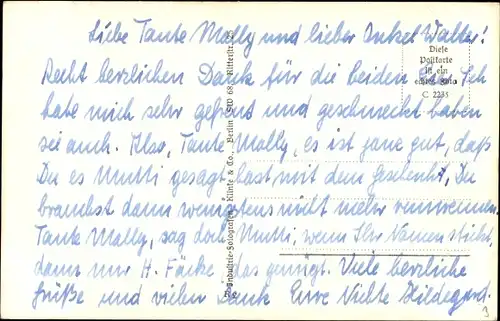 Liebe Tante Molly und lieber Onkel Walter!
Recht herzlichen Dank für die beiden Ich
habe mich sehr gefreut und geschmeckt haben
sie auch. Also, Tante Molly, es ist ganz gut, daß
Du es Mutti gesagt hast mit dem Geschenk, Du
brauchst dann wenigstens nicht mehr
Tante Molly, sag doch Mutti, wenn Ihr Namen stickt,
dann nur H. das genügt. Viele herzliche
Grüße und vielen Dank Eure Nichte Hildegard.
Diese
Postkarte
ist ein
echtes Foto
C 2235
Industrie-Fotografen Klinke & Co., Berlin SW 68, Ritterstr.
3